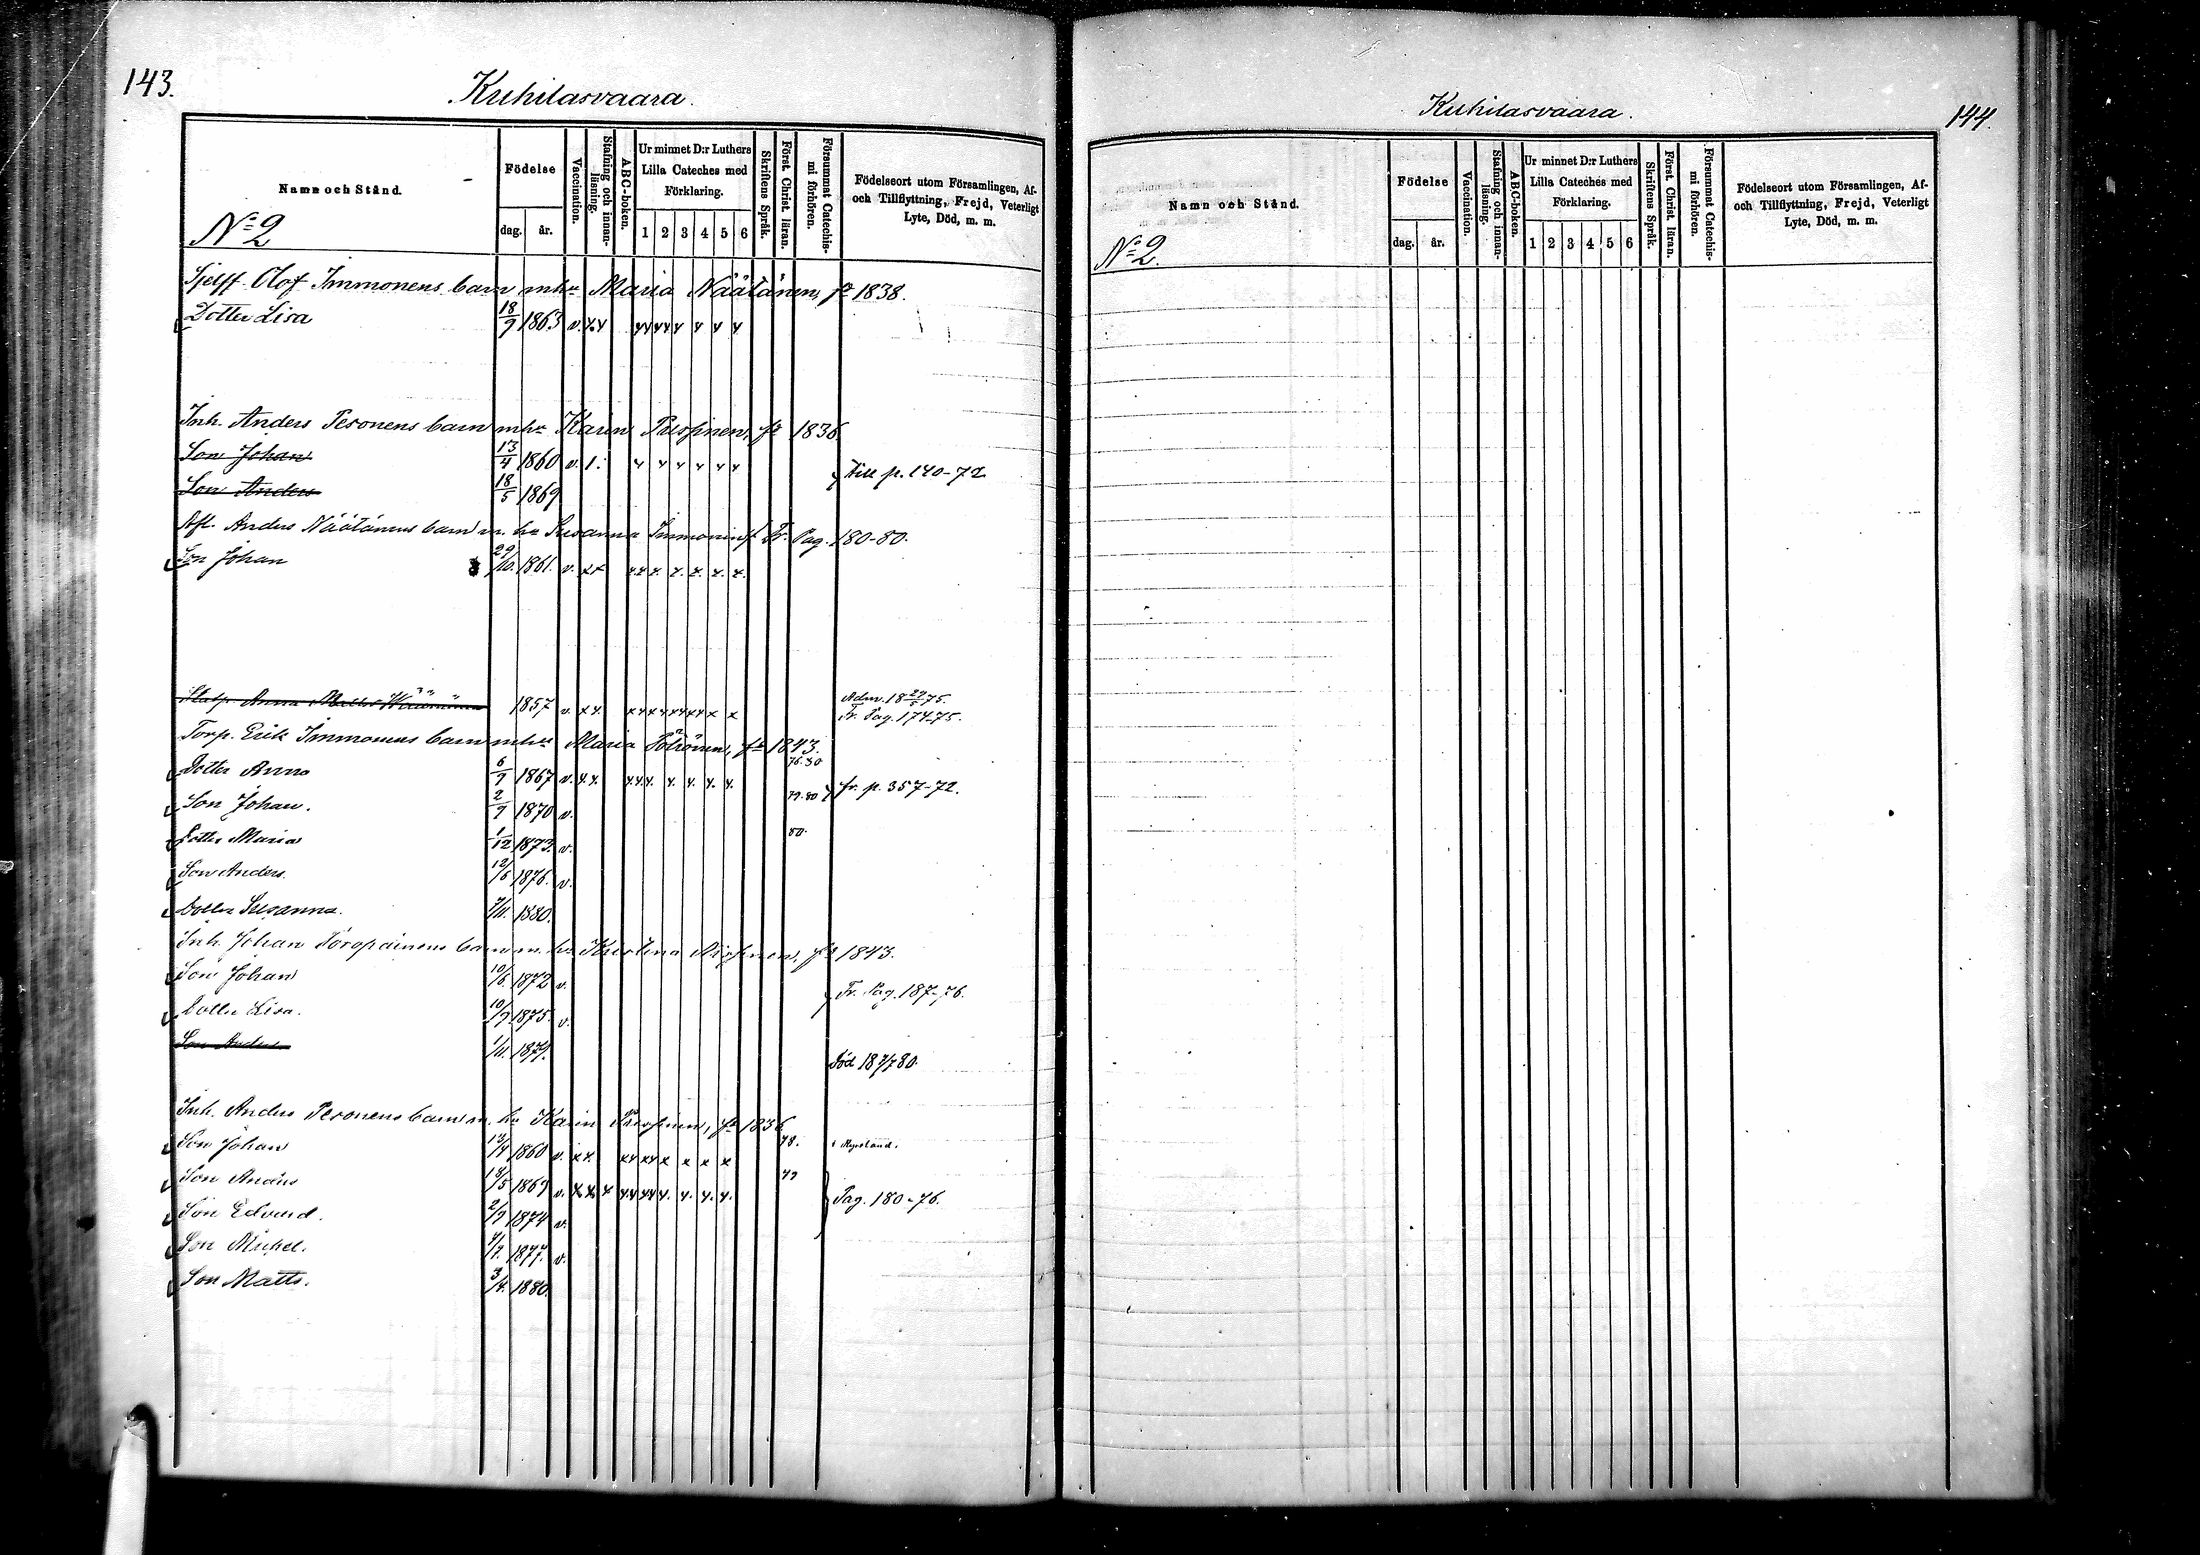 143.
Kuhilasvaara.
Namn och Stånd.
Födelse
dag. år.
Vaccination.
Stafning och innanläsning.
ABC-boken.
Ur minnet D:r Luthers Lilla Cateches med Förklaring.
1 2 3 4 5 6
Skriftens Språk.
Först. Christ. läran.
Försummat Catechismi förhören.
Födelseort utom Församlingen, Af- och Tillflyttning, Frejd, Veterligt Lyte, Död, m. m.
No 2
Sjelff. Olof Immonens barn m hu Maria Näätänen, fd 1838.
Dotter Lisa 18/9 1863 v.
Inh. Anders Pesonens barn m hu Karin fd 1836
Son Johan 13/4 1860 v. 1.
Son Anders 18/5 1869
Till p. 140-72
Afl. Anders Näätänens barn m. hu Susanna Fr. Pag. 180-80.
Son Johan 29/10. 1861. v.
Anna 1857 v.
Adm. 18 75.
Fr. Pag. 174-75.
Torp. Erik Immonens barn m hu Maria fd 1843.
Dotter Anna 6/9 1867 v. 76.80
Son Johan. 2/9 1870 v. 79.80
fr. p. 357-72.
Dotter Maria 1/12 1873. v. 80.
Son Anders. 12/6 1876. v.
Dotter Susanna. 1880.
Inh. Johan Toropainens barn m. hu Kristina fd 1843.
Son Johan 10/6. 1872 v.
Dotter Lisa. 10/9 1875. v.
Fr. Pag. 187-76.
Son Anders 1/11. 1879.
Död 18 7/7 80.
Inh. Anders Pesonens barn m. hu Karin fd 1836
Son Johan 13/4 1860 v. 78.
Son Anders 18/5 1869 v. 79
Son Edvard. 2/9 1874 v.
Pag. 180-76.
Son Mikel. 1877. v.
Son Matts. 1880.
Kuhilasvaara.
144.
Namn och Stånd.
Födelse
dag. år.
Vaccination.
Stafning och innanläsning.
ABC-boken.
Ur minnet D:r Luthers Lilla Cateches med Förklaring.
1 2 3 4 5 6
Skriftens Språk.
Först. Christ. läran.
Försummat Catechismi förhören.
Födelseort utom Församlingen, Af- och Tillflyttning, Frejd, Veterligt Lyte, Död, m. m.
No 2.